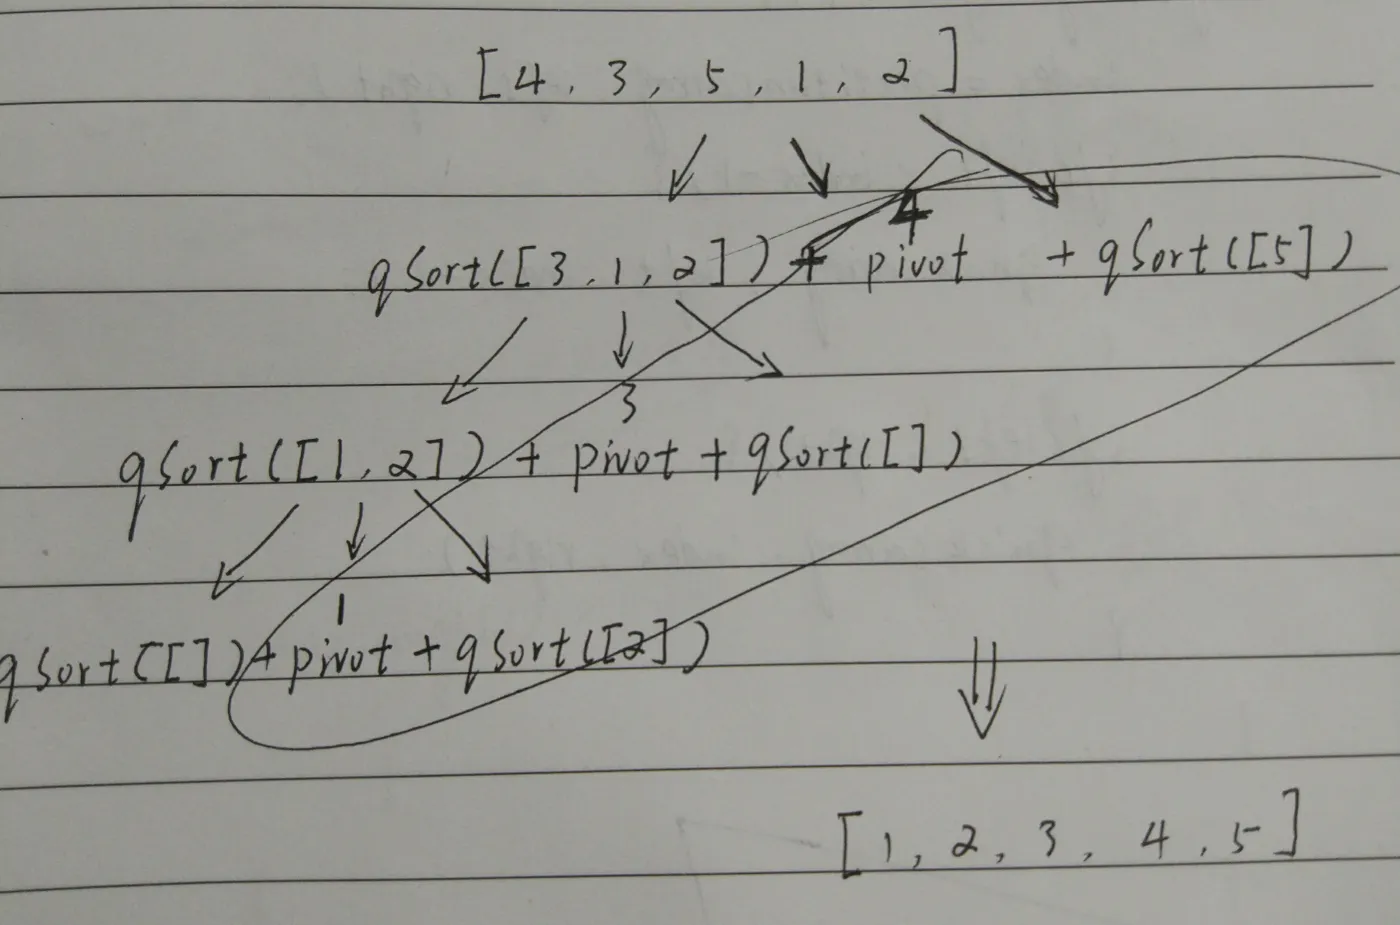 [4, 3, 5, 1, 2]
4
qSort([3, 1, 2]) + pivot + qSort([5])
3
qSort([1, 2]) + pivot + qSort([])
1
qSort([]) + pivot + qSort([2])
[1, 2, 3, 4, 5]